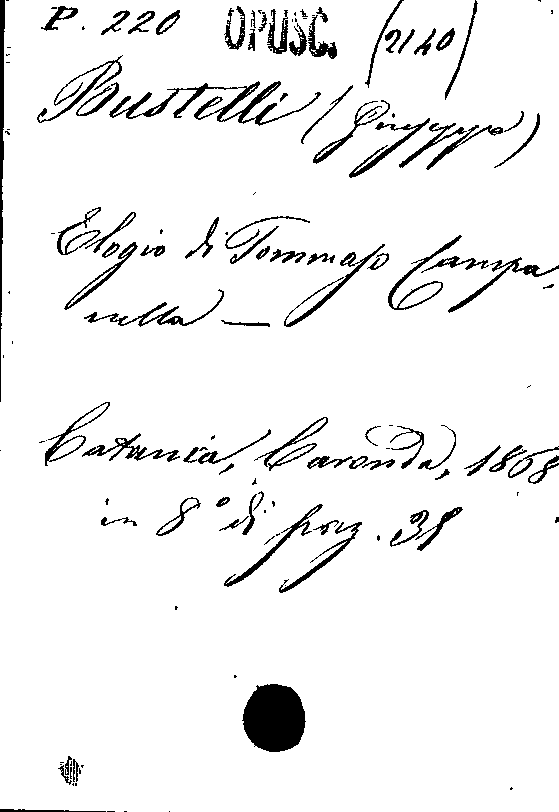 P. 220 OPUSC. (2140)
Bustelli (Giuseppe)
Elogio di Tommaso Campa-
nella —
Catania, Caronda, 1868
in 8° di pag. 38